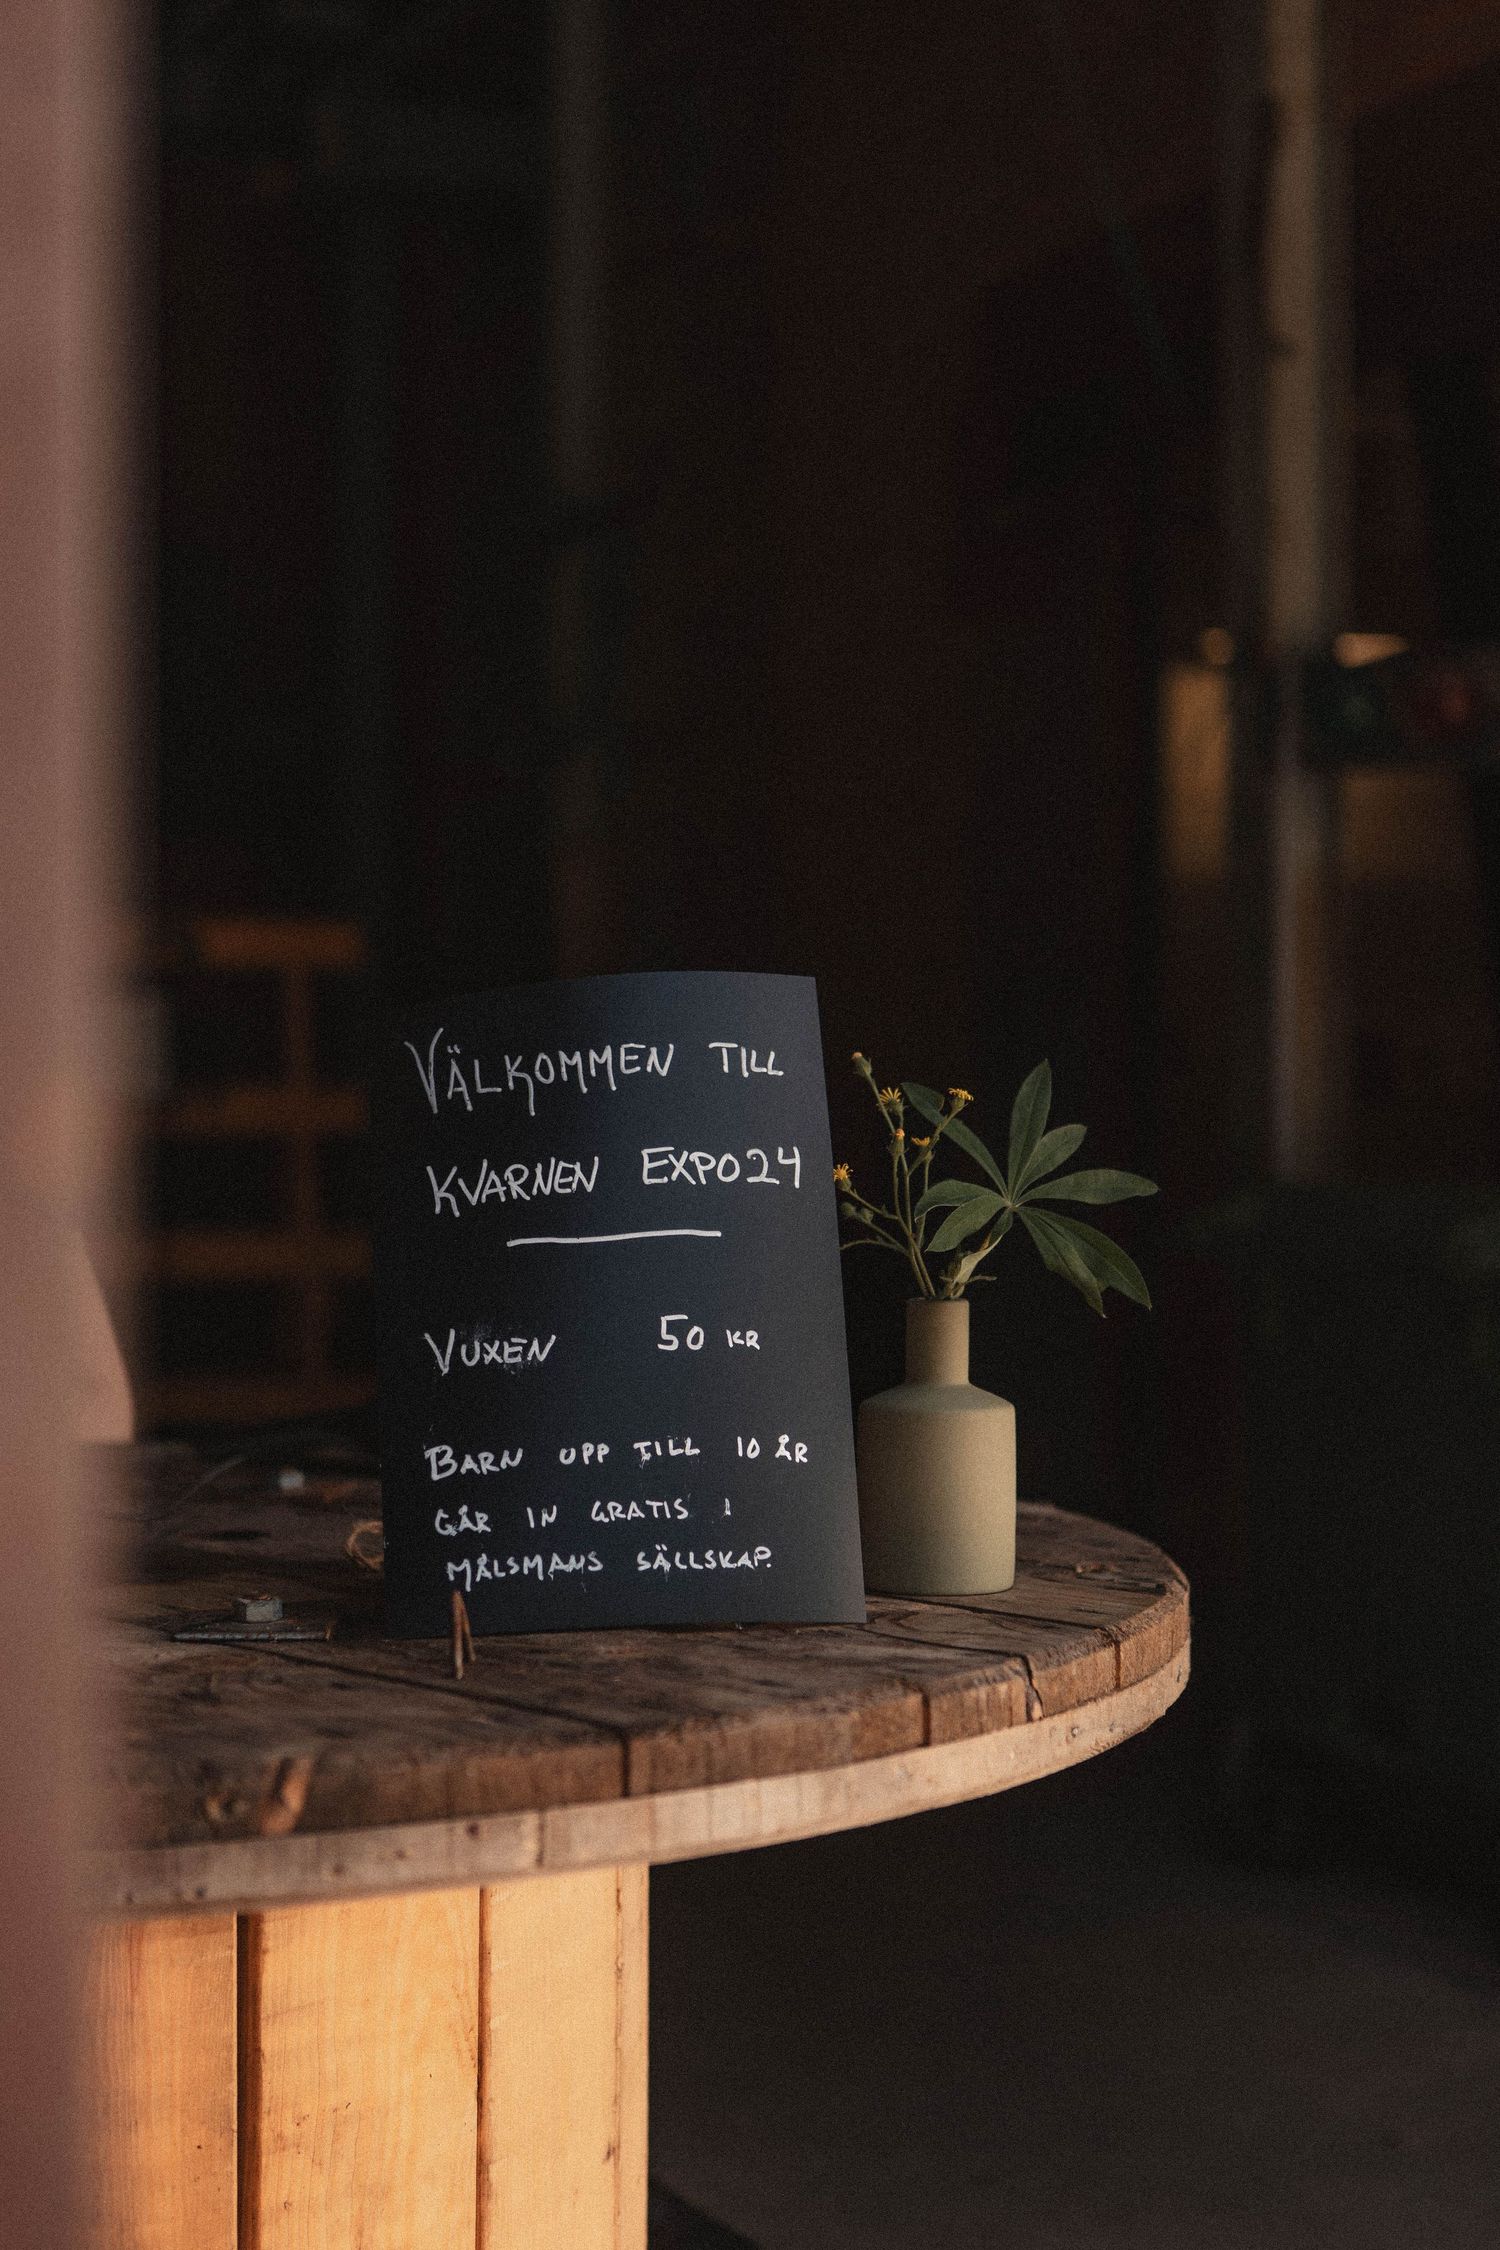 VÄLKOMMEN TILL
KVARNEN EXPO24
VUXEN 50 KR
BARN UPP TILL 10 ÅR
GÅR IN GRATIS I
MÅLSMANS SÄLLSKAP.